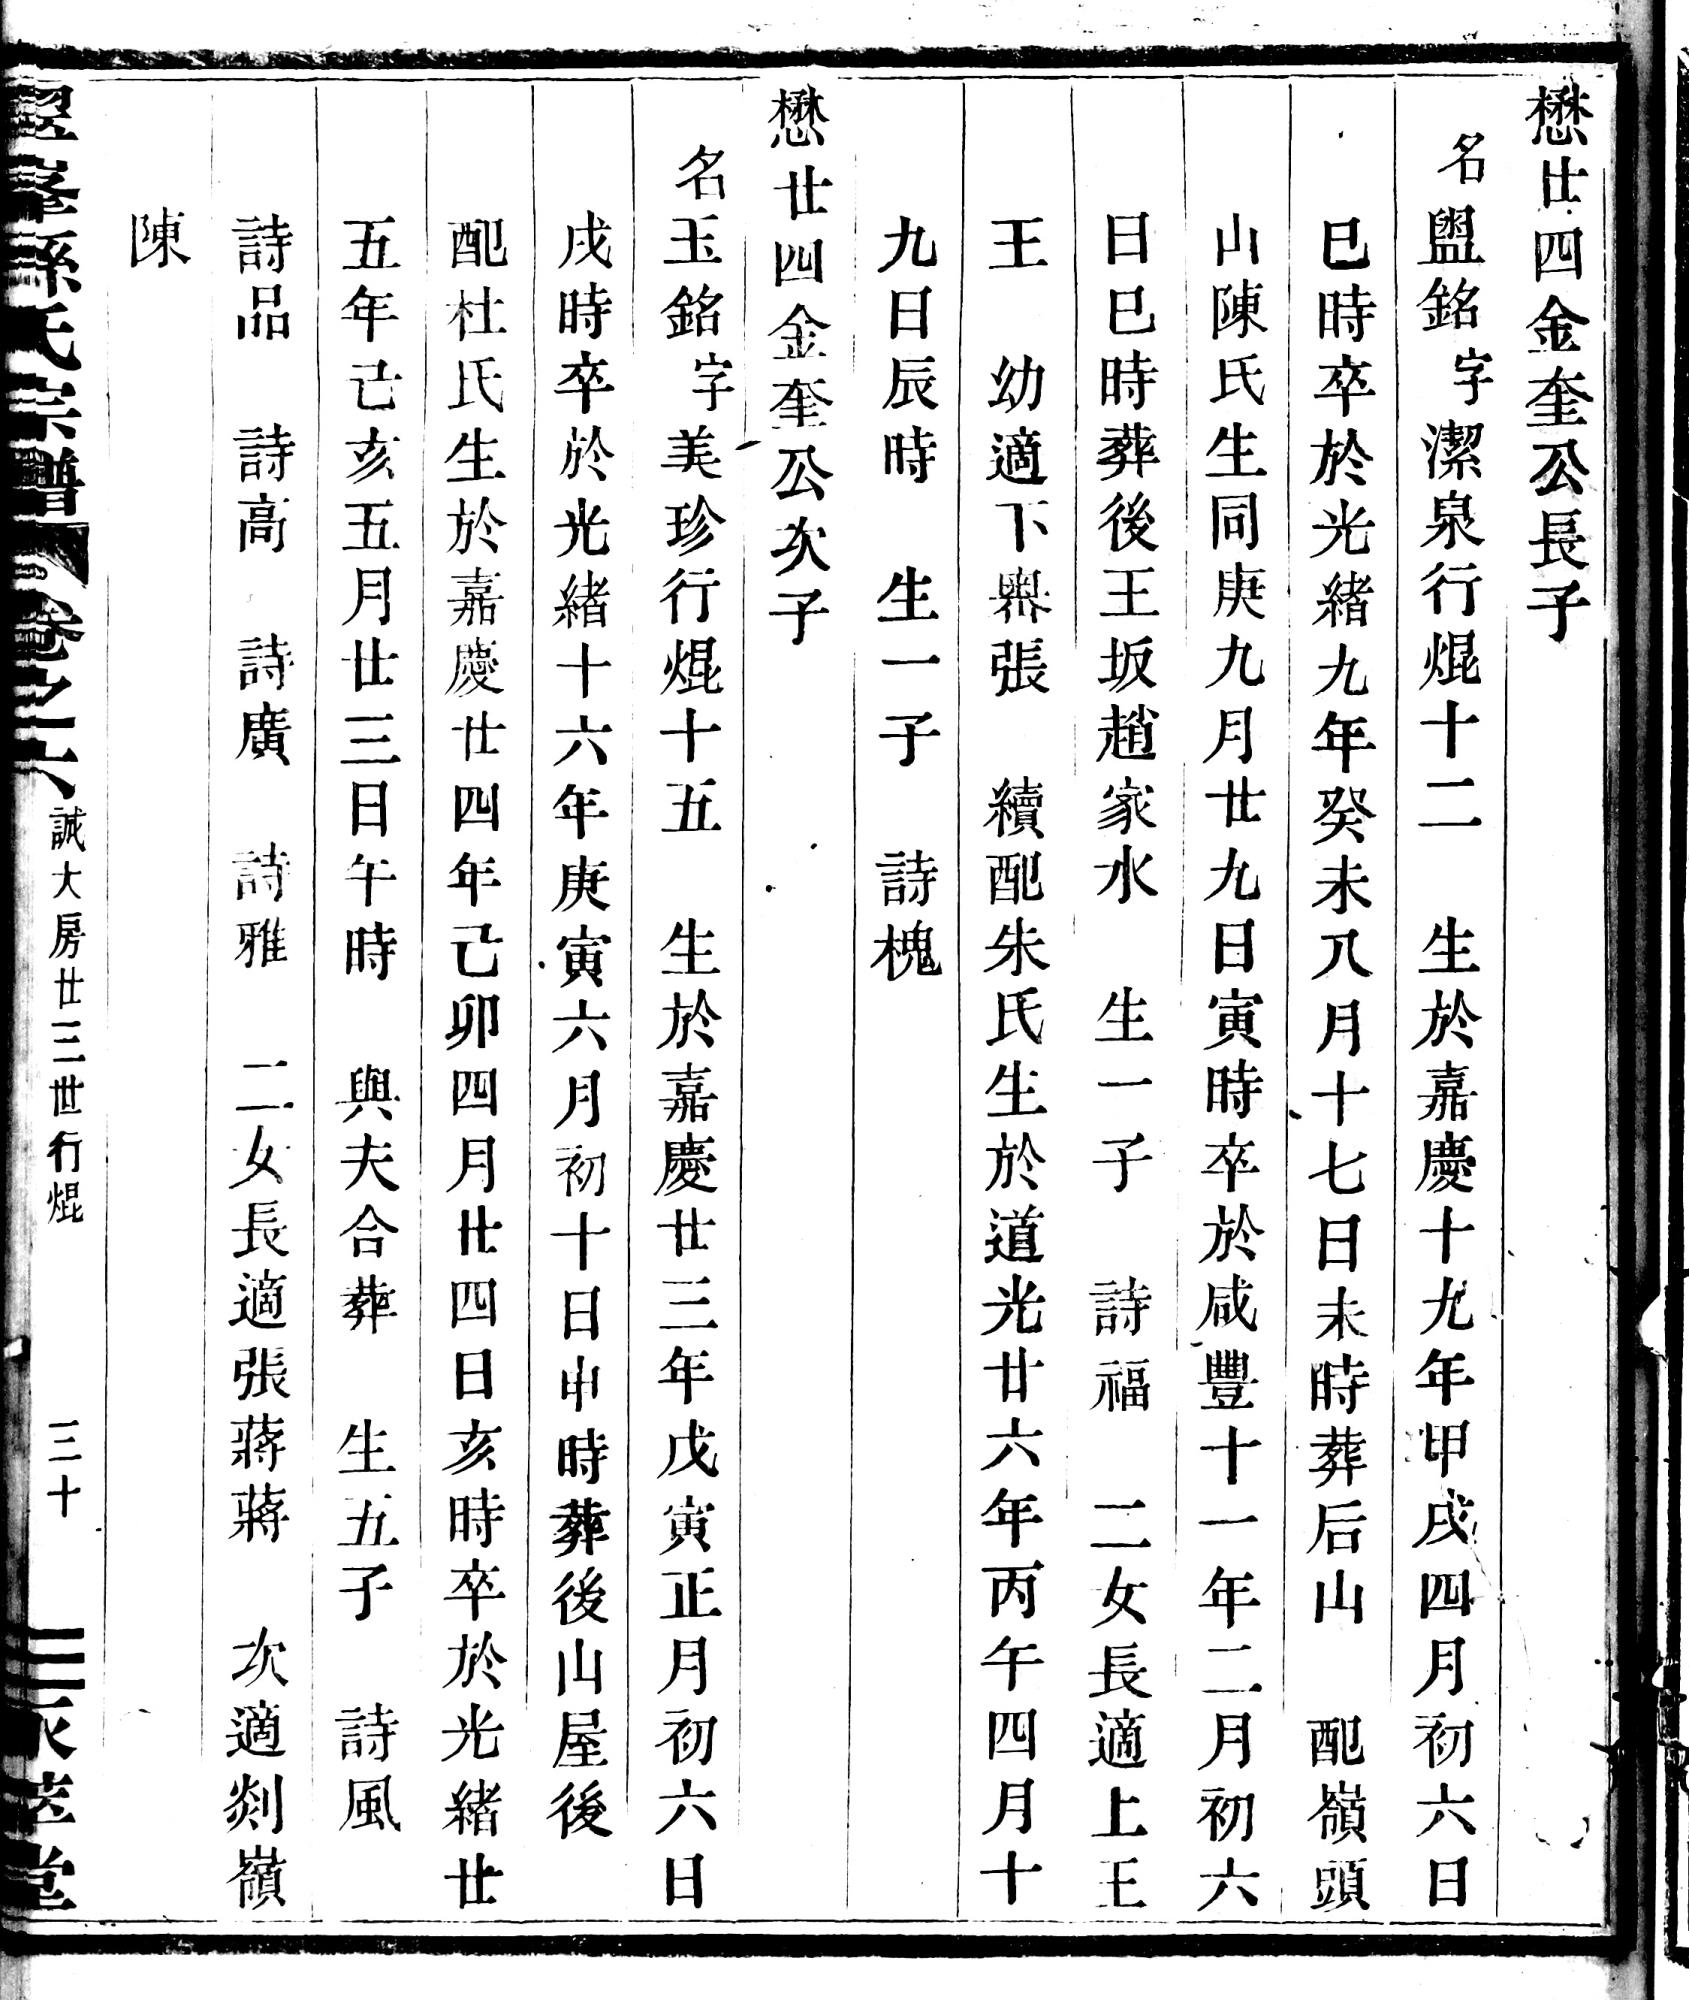 懋廿四金奎公長子
名盥銘字潔泉行焜十二　生於嘉慶十九年甲戌四月初六日
巳時卒於光緒九年癸未八月十七日未時葬后山　配嶺頭
山陳氏生同庚九月廿九日寅時卒於咸豐十一年二月初六
日巳時葬後王坂趙家水　生一子　詩福　二女長適上王
王　幼適下嶴張　續配朱氏生於道光廿六年丙午四月十
九日辰時　生一子　詩槐
懋廿四金奎公次子
名玉銘字美珍行焜十五　生於嘉慶廿三年戊寅正月初六日
戌時卒於光緒十六年庚寅六月初十日申時葬後山屋後
配杜氏生於嘉慶廿四年己卯四月廿四日亥時卒於光緒廿
五年己亥五月廿三日午時　與夫合葬　生五子　詩風
詩品　詩高　詩廣　詩雅　二女長適張蔣蔣　次適剡嶺
陳
峯孫氏宗譜　卷之六　誠大房廿三世行焜　三十　堂